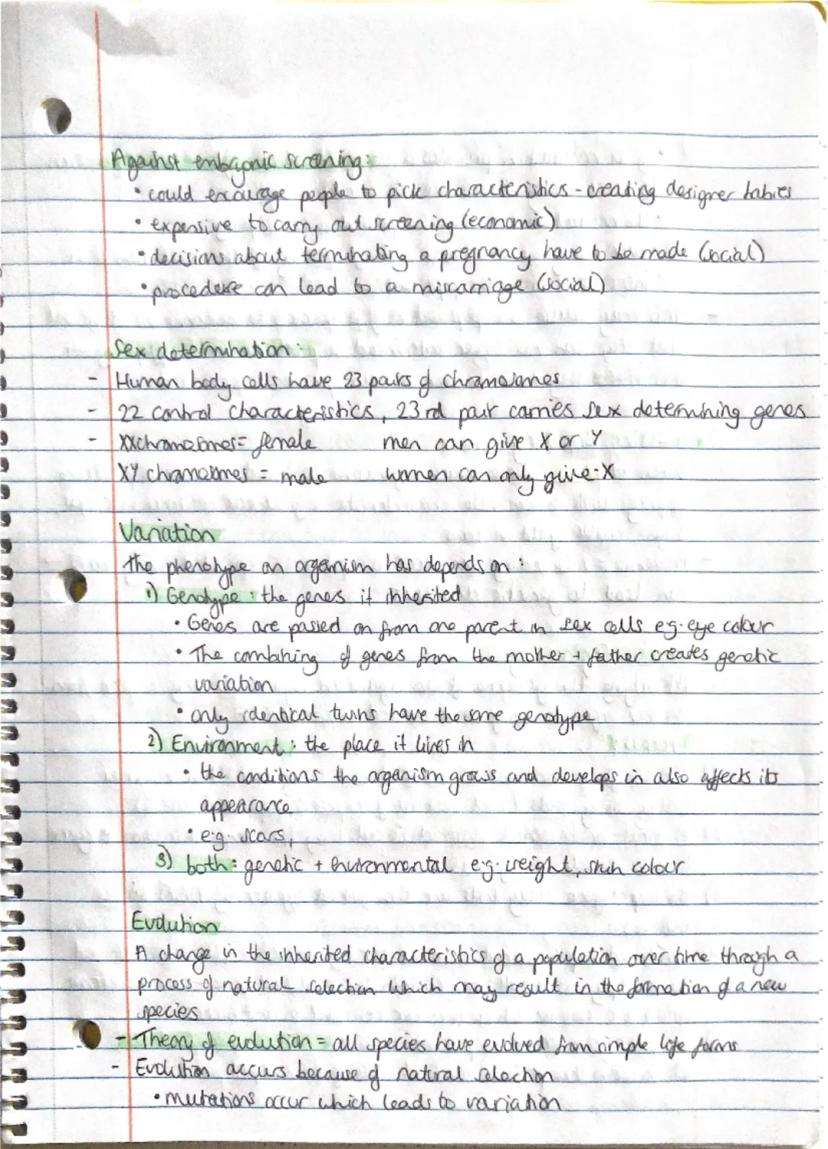 Against embryonic screening:
• could encourage people to pick characteristics - creating designer babies
• expensive to carry out screening (economic)
• decisions about terminating a pregnancy have to be made (social)
• procedure can lead to a miscarriage (social)
Sex determination:
- Human body cells have 23 pairs of chromosomes
- 22 control characteristics, 23rd pair carries sex determining genes
- XX chromosomes = female men can give X or Y
XY chromosomes = male women can only give X
Variation
The phenotype an organism has depends on:
1) Genotype: the genes it inherited
• Genes are passed on from one parent in sex cells eg. eye colour
• The combining of genes from the mother + father creates genetic
variation
• only identical twins have the same genotype
2) Environment: the place it lives in
• the conditions the organism grows and develops in also affects its
appearance
• e.g. scars,
3) both: genetic + environmental e.g. weight, skin colour
Evolution
A change in the inherited characteristics of a population over time through a
process of natural selection which may result in the formation of a new
species
- Theory of evolution = all species have evolved from simple life forms
- Evolution occurs because of natural selection
• mutations occur which leads to variation